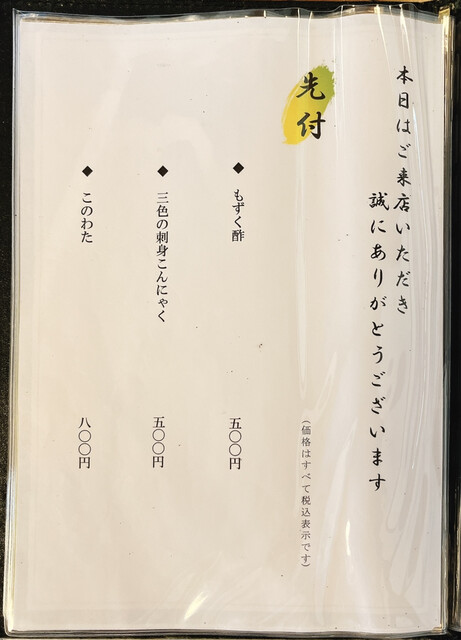 本日はご来店いただき
誠にありがとうございます
先付
(価格はすべて税込表示です)
◆ もずく酢 五〇〇円
◆ 三色の刺身こんにゃく 五〇〇円
◆ このわた 八〇〇円